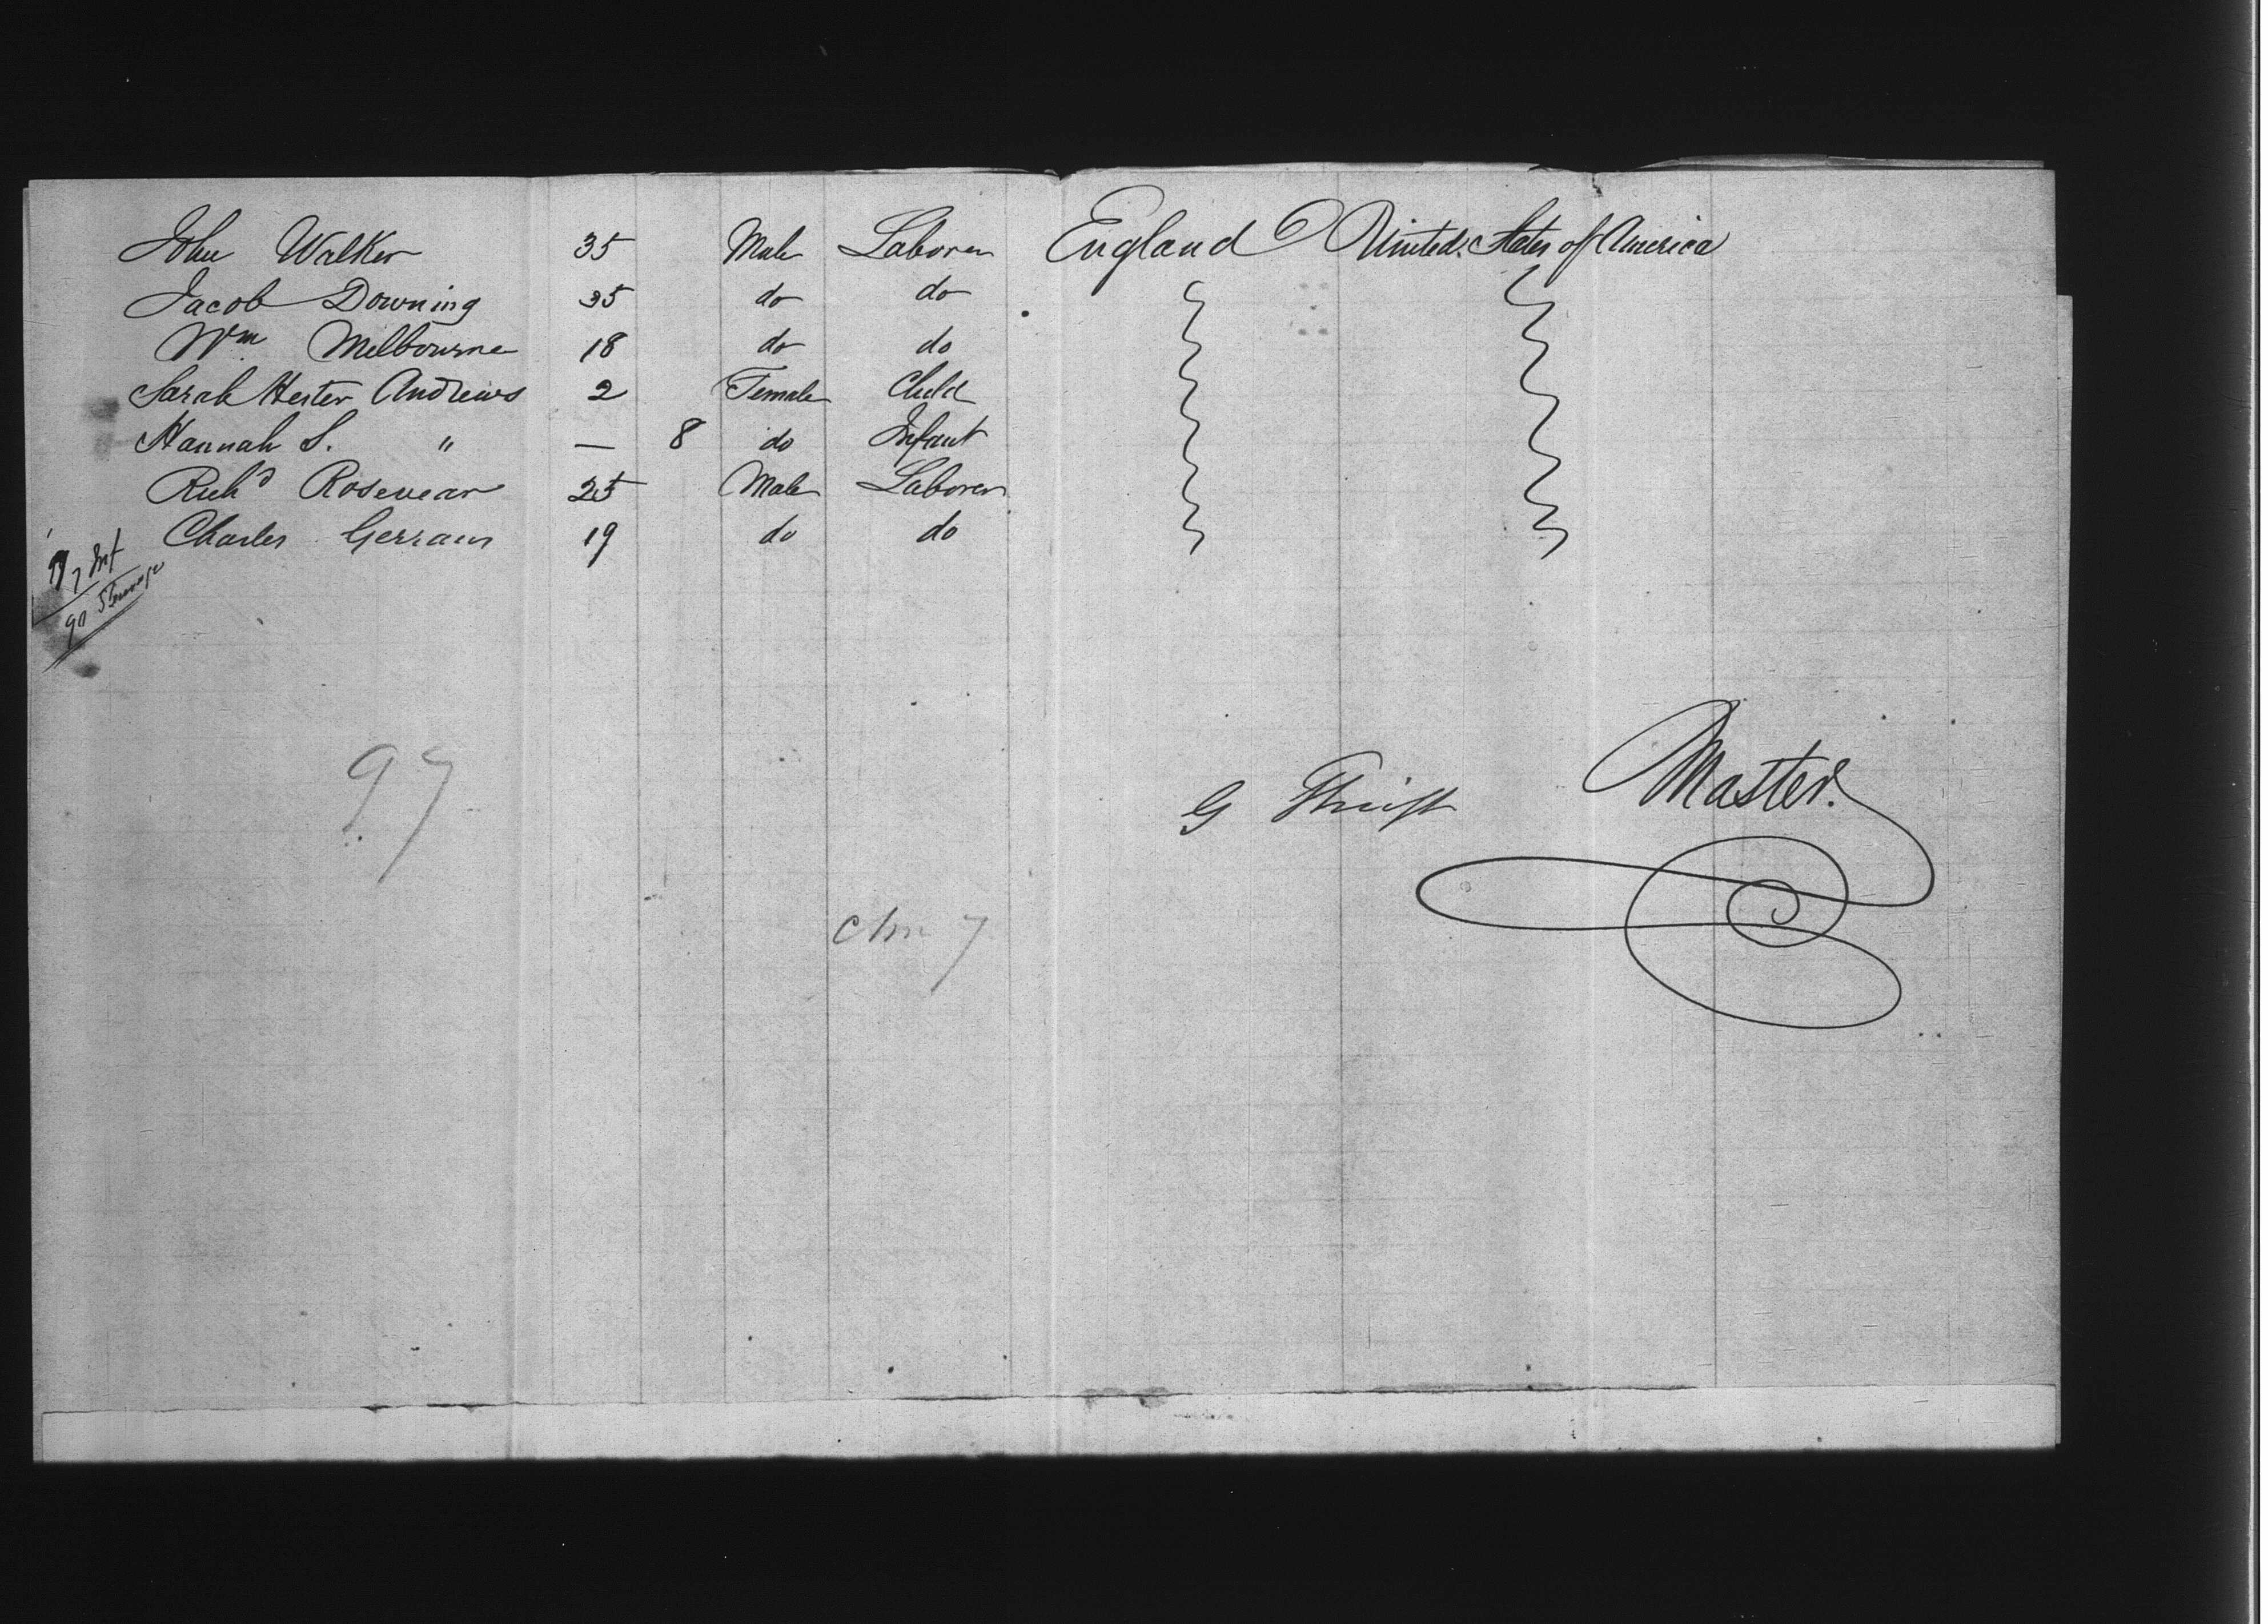 John Walker 35 Male Laborer England United States of America
Jacob Downing 35 do do
Wm Melbourne 18 do do
Sarah Hester Andrews 2 Female Child
Hannah S. " — 8 do Infant
Richd Rosevear 25 Male Laborer
Charles Gerrans 19 do do
7 Inf
90 Steerage
97
G Thrift Master.
7